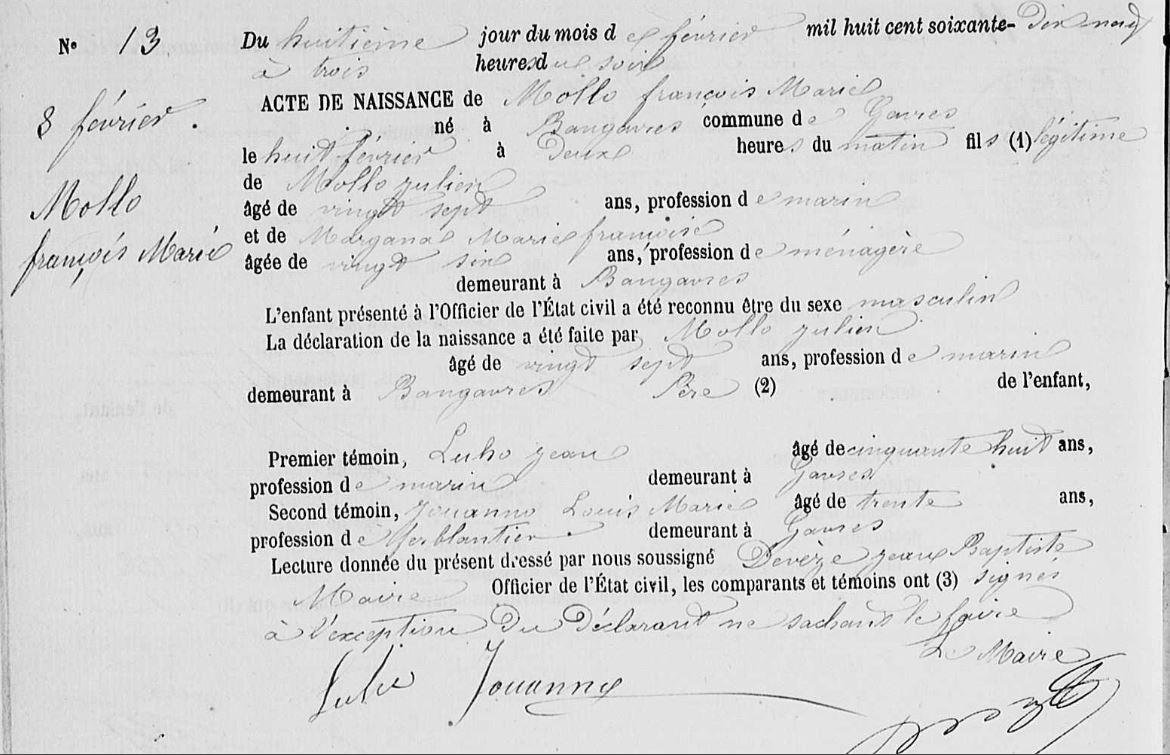 N° 13 Du huitième jour du mois de février mil huit cent soixante-dix neuf
à trois heures du soir
8 février.
ACTE DE NAISSANCE de Mollo françois Marie
né à Bangavres commune de Gavres
le huit février à Deux heures du matin fils (1) légitime
de Mollo julien
Mollo
françois Marie
âgé de vingt sept ans, profession de marin
et de Marie françoise
âgée de vingt six ans, profession de ménagère
demeurant à Bangavres
L'enfant présenté à l'Officier de l'État civil a été reconnu être du sexe masculin
La déclaration de la naissance a été faite par Mollo julien
âgé de vingt sept ans, profession de marin
demeurant à Bangavres Père (2) de l'enfant,
Premier témoin, jean âgé de cinquante huit ans,
profession de marin demeurant à Gavres
Second témoin, Jouanno Louis Marie âgé de trente ans,
profession de ferblantier. demeurant à Gavres
Lecture donnée du présent dressé par nous soussigné Devèze jean Baptiste
Maire Officier de l'État civil, les comparants et témoins ont (3) signés
à l'exception Du Déclarant ne sachant le faire
Le Maire
Jouanno